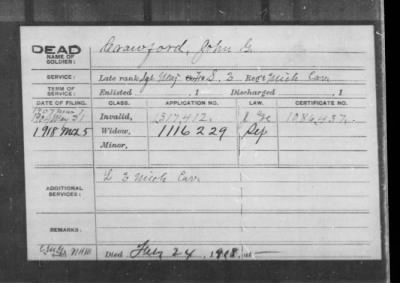 DEAD
NAME OF SOLDIER:
Crawford, John G.
SERVICE:
Late rank, Sgt Maj Co. F & S, 3 Reg't Mich Cav.
TERM OF SERVICE:
Enlisted , 1 Discharged , 1
DATE OF FILING. CLASS. APPLICATION NO. LAW. CERTIFICATE NO.
Invalid, 1086437
1918 Mar 5 Widow, 1116229 Sep
Minor,
ADDITIONAL SERVICES:
L 3 Mich Cav.
REMARKS:
Died Feby 24, 1918, at —